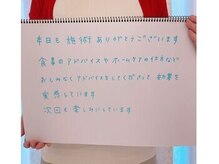 本日も施術ありがとうございます
食事のアドバイスやホームケアの仕方など
おしみなくアドバイスをしてくださって 効果を
実感しています
次回も楽しみにしています